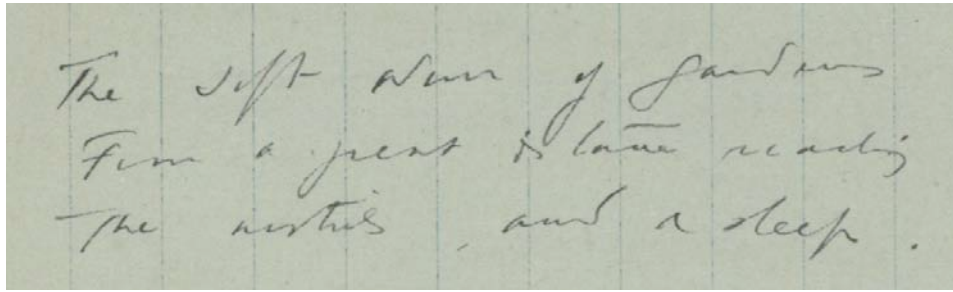 The soft odour of gardens
From a great distance reaching
The nostrils, and a sleep.